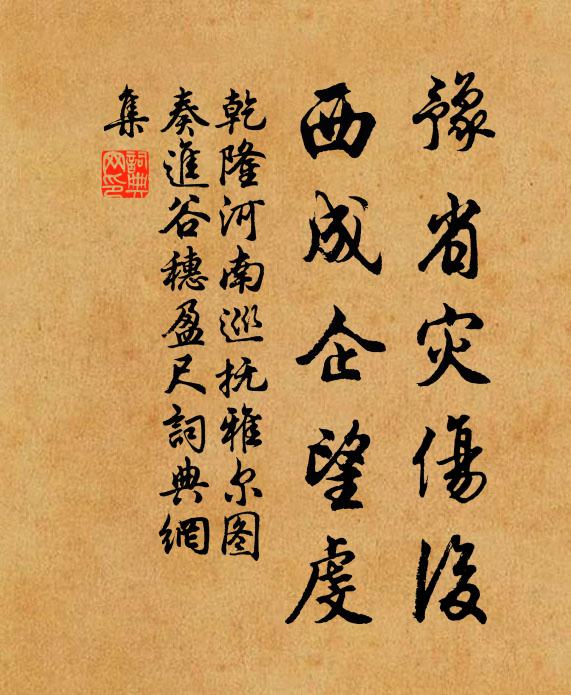 豫省灾傷後
西成企望虔
乾隆河南巡抚雅尔图
奏進谷穗盈尺詞典網
集
詞典
网印